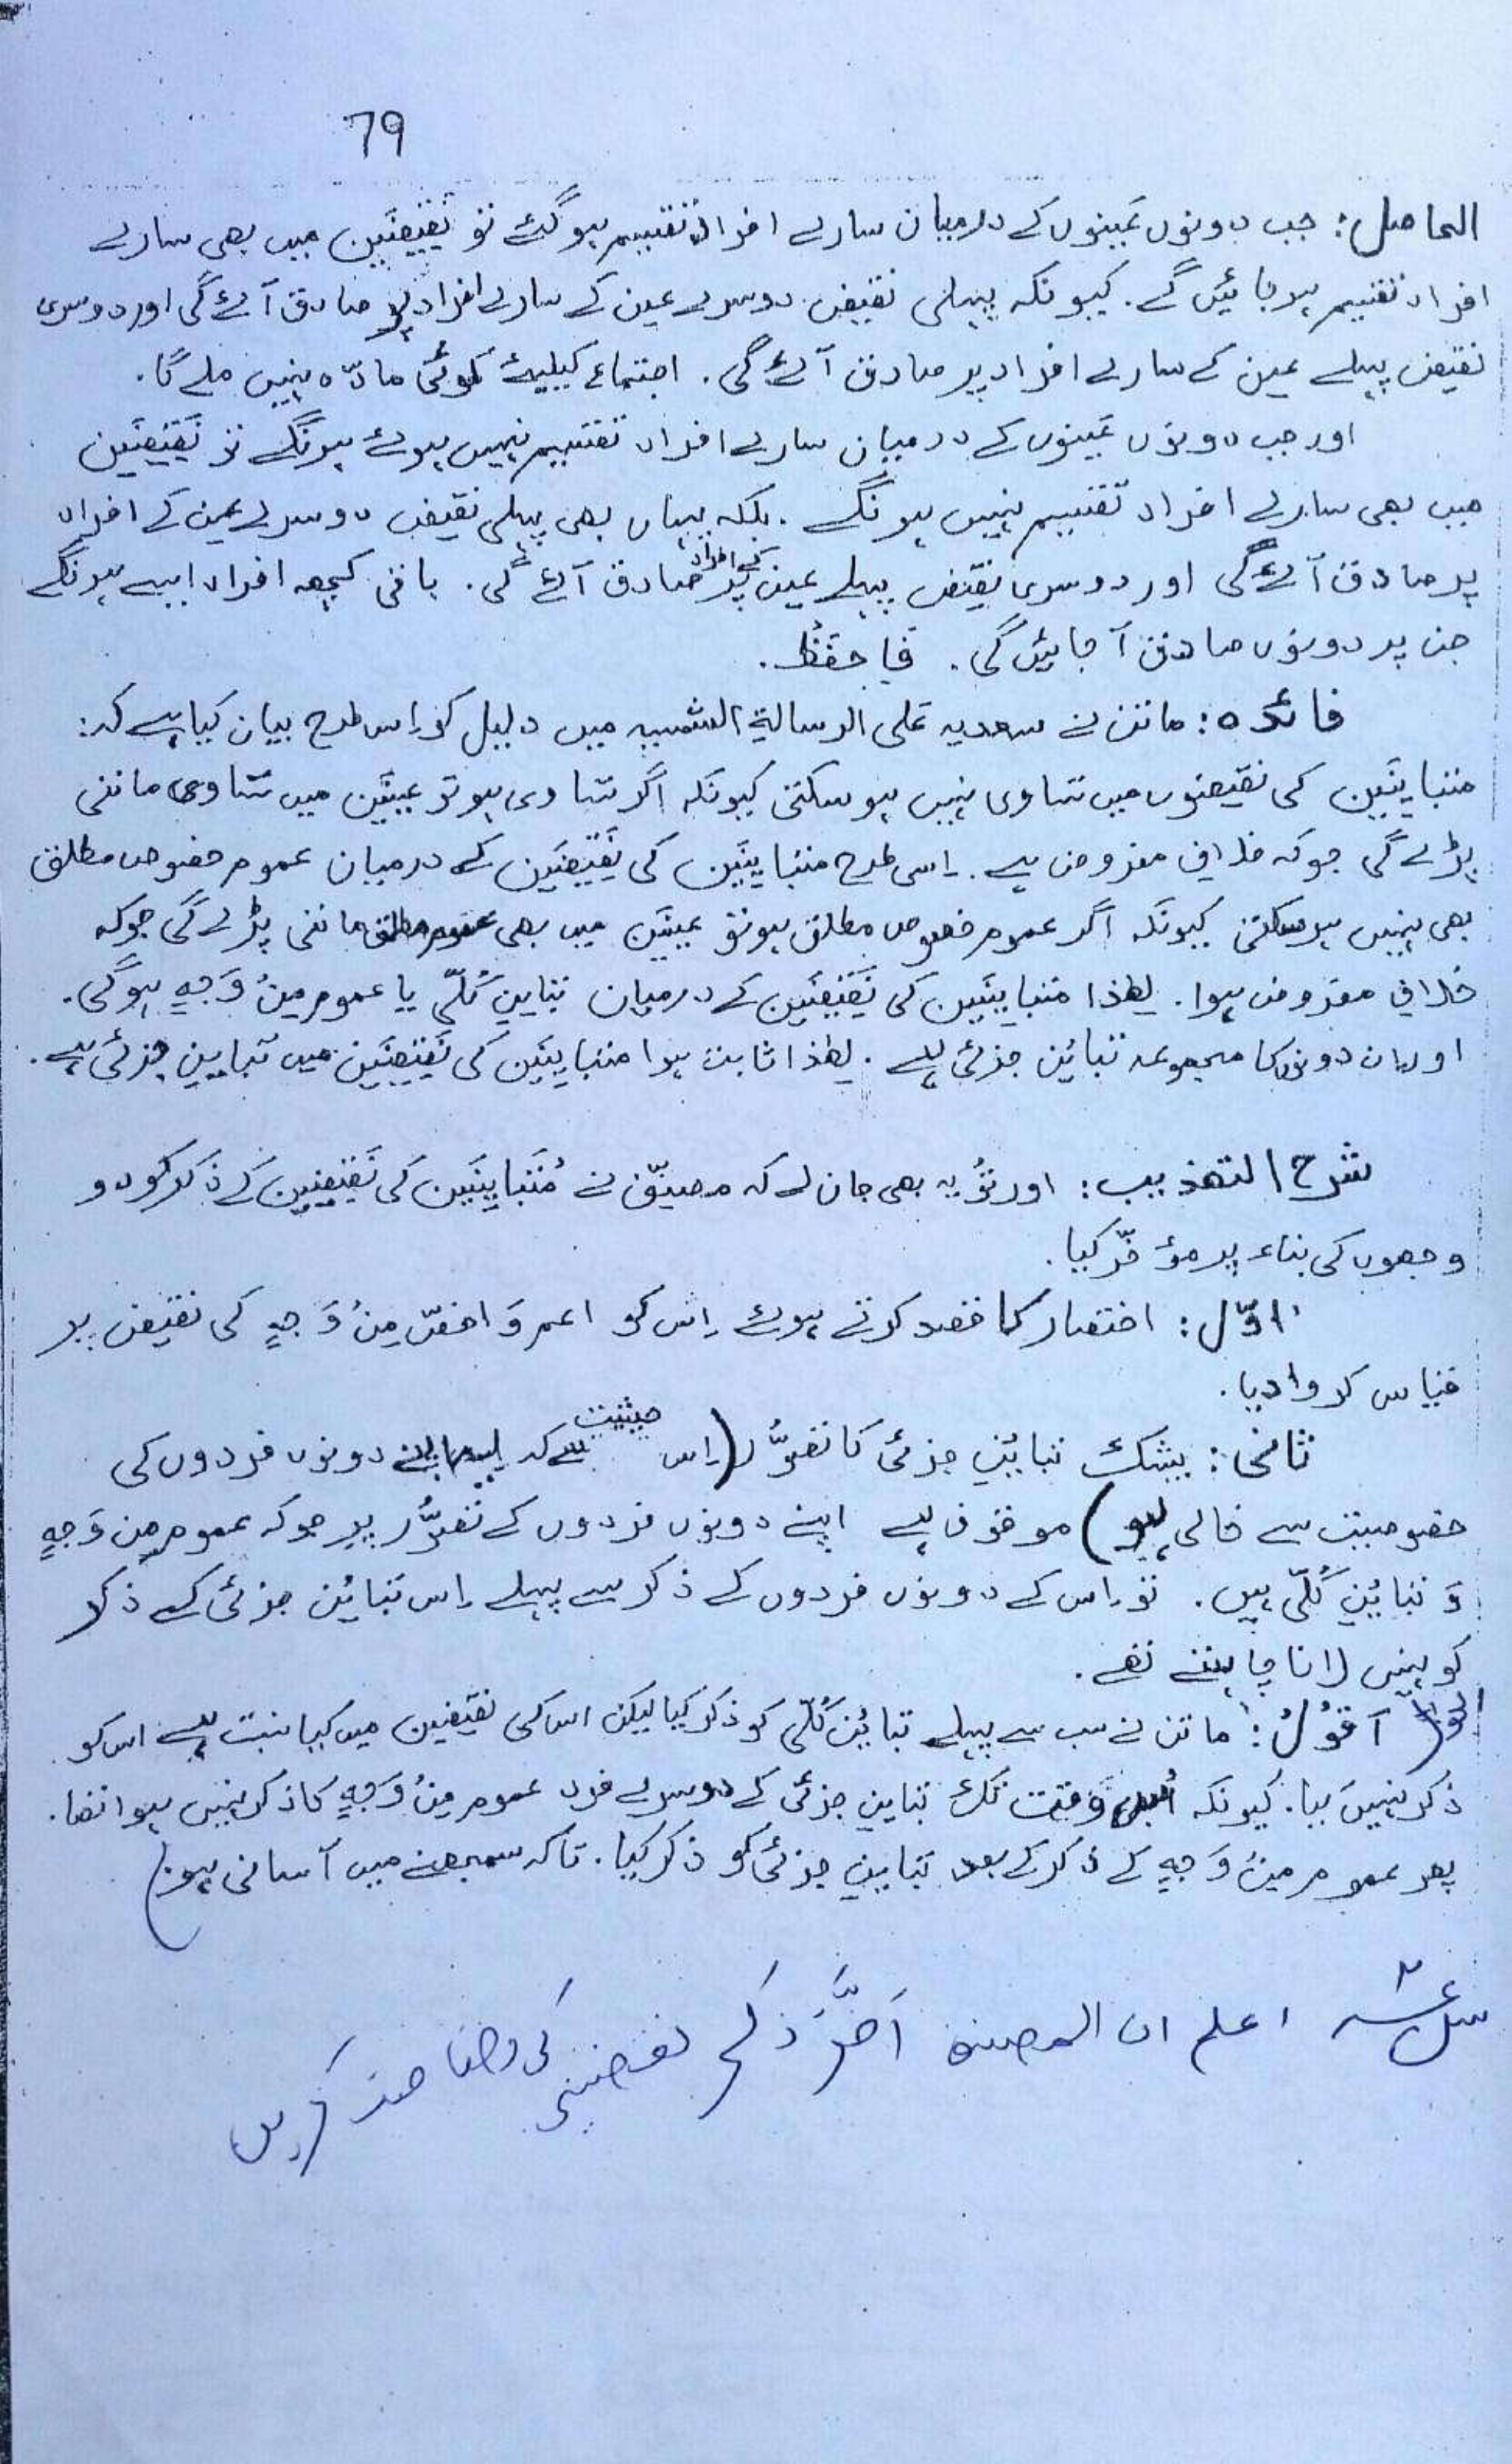 79
الحاصل: جب دونوں عَینوں کے درمیان سارے افراد تقسیم ہو گئے تو نَقِیضَین میں بھی سارے
افراد تقسیم ہو جائیں گے. کیونکہ پہلی نقیض دوسرے عین کے سارے افراد پر صادق آئے گی اور دوسری
نقیض پہلے عین کے سارے افراد پر صادق آئے گی. اجتماع کیلیئے کوئی مادّہ نہیں ملے گا.
اور جب دونوں عَینوں کے درمیان سارے افراد تقسیم نہیں ہوئے ہونگے تو نَقِیضَین
میں بھی سارے افراد تقسیم نہیں ہونگے. بلکہ یہاں بھی پہلی نقیض دوسرے عین کے افراد
پر صادق آئے گی اور دوسری نقیض پہلے عین کے افراد پر صادق آئے گی. باقی کچھ افراد ایسے ہونگے
جن پر دونوں صادق آ جائیں گی. فَاحفَظْ.
فائدہ: ماتن نے سعدیہ عَلی الرسالۃِ الشمسیہ میں دلیل کو اِس طرح بیان کیا ہے کہ:
متباینَین کی نقیضوں میں تساوی نہیں ہو سکتی کیونکہ اگر تساوی ہو تو عینَین میں تساوی ماننی
پڑے گی جو کہ خلافِ مفروض ہے. اِسی طرح متباینَین کی نَقِیضَین کے درمیان عموم خصوص مطلق
بھی نہیں ہو سکتی کیونکہ اگر عموم خصوص مطلق ہو تو عینَین میں بھی عموم مطلق ماننی پڑے گی جو کہ
خلافِ مفروض ہوا. لھٰذا متباینَین کی نَقِیضَین کے درمیان تباینِ کُلّی یا عموم مِنْ وَجہٍ ہو گی.
اور اِن دونوں کا مجموعہ تبائنِ جزئی ہے. لھٰذا ثابت ہوا متباینَین کی نَقِیضَین میں تباینِ جزئی ہے.
شرح التھذیب: اور تُو یہ بھی جان لے کہ مصنِّف نے مُتَبَاینَین کی نَقِیضَین کے ذکر کو دو
وجھوں کی بناء پر مؤخّر کیا.
اوّل: اختصار کا قصد کرتے ہوئے اِس کو اعم وَ اخصّ مِنْ وَجہٍ کی نقیض پر
قیاس کروا دیا.
ثانی: بیشک تبائنِ جزئی کا تصوُّر (اِس حیثیت سے کہ اپنے دونوں فردوں کی
خصوصیت سے خالی ہو) موقوف ہے اپنے دونوں فردوں کے تصوُّر پر جو کہ عموم مِن وَجہٍ
وَ تبائنِ کُلّی ہیں. تو اِس کے دونوں فردوں کے ذکر سے پہلے اِس تبائنِ جزئی کے ذکر
کو نہیں لانا چاہتے تھے.
اَقُوْلُ: ماتن نے سب سے پہلے تبائنِ کُلّی کو ذکر کیا لیکن اس کی نقیضین میں کیا نسبت ہے اس کو
ذکر نہیں کیا. کیونکہ اُس وَقت تک تباینِ جزئی کے دوسرے فرد عموم مِنْ وَجہٍ کا ذکر نہیں ہوا تھا.
پھر عموم مِنْ وَجہٍ کے ذکر کے بعد تباینِ جزئی کو ذکر کیا. تاکہ سمجھنے میں آسانی ہو)
اعلم ان المصنف اَخَّرَ ذکر نقیضی کی وضاحت کریں